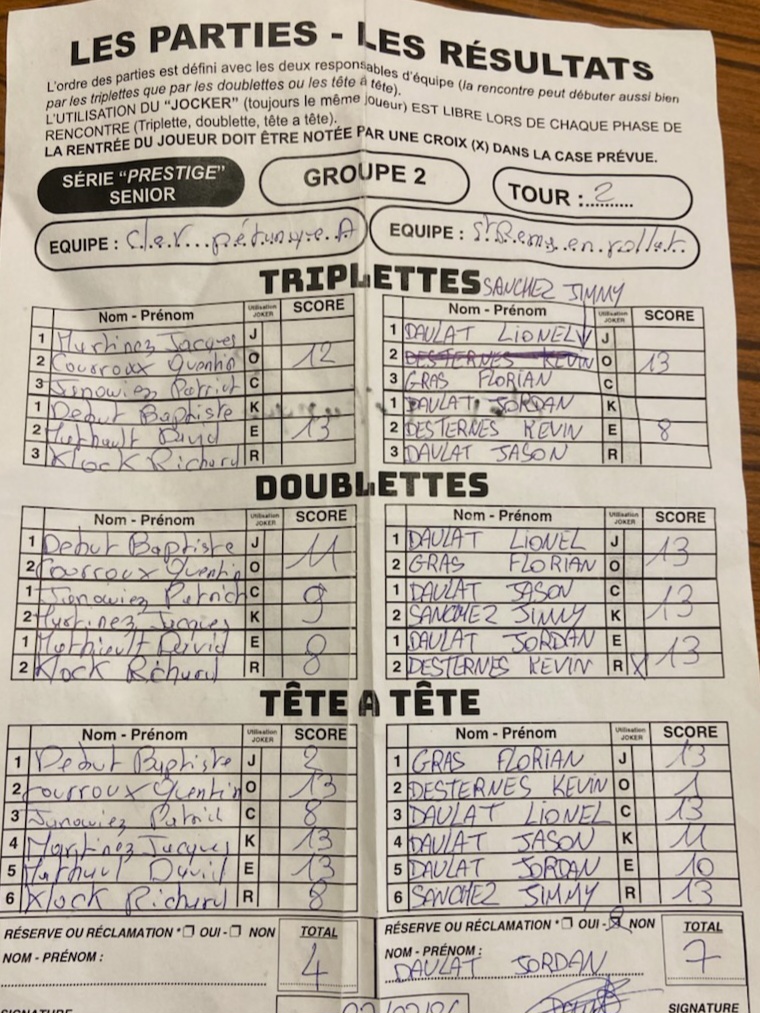 LES PARTIES - LES RÉSULTATS
L'ordre des parties est défini avec les deux responsables d'équipe (la rencontre peut débuter aussi bien
par les triplettes que par les doublettes ou les tête à tête).
L'UTILISATION DU "JOCKER" (toujours le même joueur) EST LIBRE LORS DE CHAQUE PHASE DE
RENCONTRE (Triplette, doublette, tête a tête).
LA RENTRÉE DU JOUEUR DOIT ÊTRE NOTÉE PAR UNE CROIX (X) DANS LA CASE PRÉVUE.
SÉRIE "PRESTIGE" SENIOR
GROUPE 2
TOUR : 2
EQUIPE : C.l.e.V... pétanque. A
EQUIPE : St Remy. en. rollat.
TRIPLETTES SANCHEZ JIMMY
Nom - Prénom Utilisation JOKER SCORE
1 Martinez Jacques J
2 Courroux Quentin O 12
3 Janowiez Patrick C
1 Debut Baptiste K
2 David E 13
3 Klock Richard R
Nom - Prénom SCORE
1 DAULAT LIONEL J
2 DESTERNES KEVIN O 13
3 GRAS FLORIAN C
1 DAULAT JORDAN K
2 DESTERNES KEVIN E 8
3 DAULAT JASON R
DOUBLETTES
Nom - Prénom Utilisation JOKER SCORE
1 Debut Baptiste J 11
2 Courroux Quentin O
1 Janowiez Patrick C 9
2 Martinez Jacques K
1 Mathieult David E 8
2 Klock Richard R
Nom - Prénom Utilisation JOKER SCORE
1 DAULAT LIONEL J 13
2 GRAS FLORIAN O
1 DAULAT JASON C 13
2 SANCHEZ JIMMY K
1 DAULAT JORDAN E 13
2 DESTERNES KEVIN R X
TÊTE A TÊTE
Nom - Prénom Utilisation JOKER SCORE
1 Debut Baptiste J 2
2 Courroux Quentin O 13
3 Janowiez Patrick C 8
4 Martinez Jacques K 13
5 David E 13
6 Klock Richard R 8
Nom - Prénom Utilisation JOKER SCORE
1 GRAS FLORIAN J 13
2 DESTERNES KEVIN O 1
3 DAULAT LIONEL C 13
4 DAULAT JASON K 11
5 DAULAT JORDAN E 10
6 SANCHEZ JIMMY R 13
RÉSERVE OU RÉCLAMATION * ☐ OUI - ☐ NON
NOM - PRÉNOM :
TOTAL
4
RÉSERVE OU RÉCLAMATION * ☐ OUI - ☒ NON
NOM - PRÉNOM :
DAULAT JORDAN
TOTAL
7
SIGNATURE
SIGNATURE